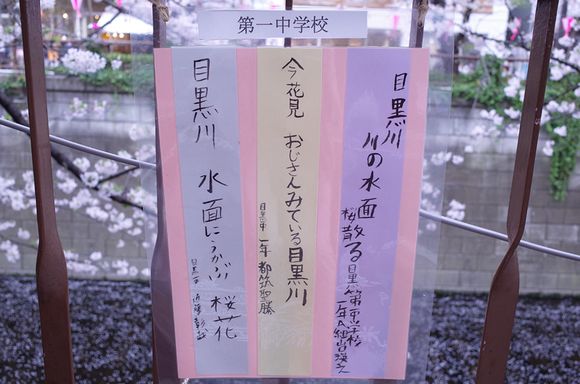 第一中学校
目黒川
川の水面
桜散る
目黒第一中学校
一年A組
今花見 おじさんみている目黒川
目黒一中 一年 都筑聖勝
目黒川 水面にうかぶ 桜花
目黒一中